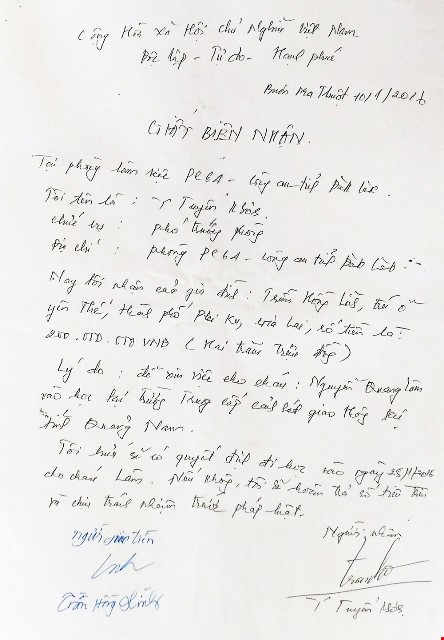 Cộng Hòa xã Hội chủ Nghĩa Việt Nam
Độc lập - Tự do - Hạnh phúc
Buôn Ma Thuột 10/1/2016
GIẤY BIÊN NHẬN.
Tại phòng làm việc PC61 - công an tỉnh Đăk Lăk.
Tôi tên là : Y Tuyên Ksơr.
chức vụ : phó trưởng phòng
Địa chỉ : phòng PC61 - công an tỉnh Đăk Lăk
Nay tôi nhận của gia đình : Trần Hồng, trú ở
yên Thế, thành phố Plei Ku, Gia Lai, số tiền là:
200.000.000 VNĐ ( Hai trăm triệu đồng )
Lý do : để xin việc cho cháu : Nguyễn Quang Lâm
vào học tại Trường Trung cấp cảnh sát giao thông tại
tỉnh Quảng Nam.
Tôi hứa sẽ có quyết định đi học vào ngày 25/1/2016
cho cháu Lâm. Nếu không, tôi sẽ hoàn trả số tiền trên
và chịu trách nhiệm trước pháp luật.
Người giao tiền
Người nhận
Trần Hồng
Y Tuyên Ksơr